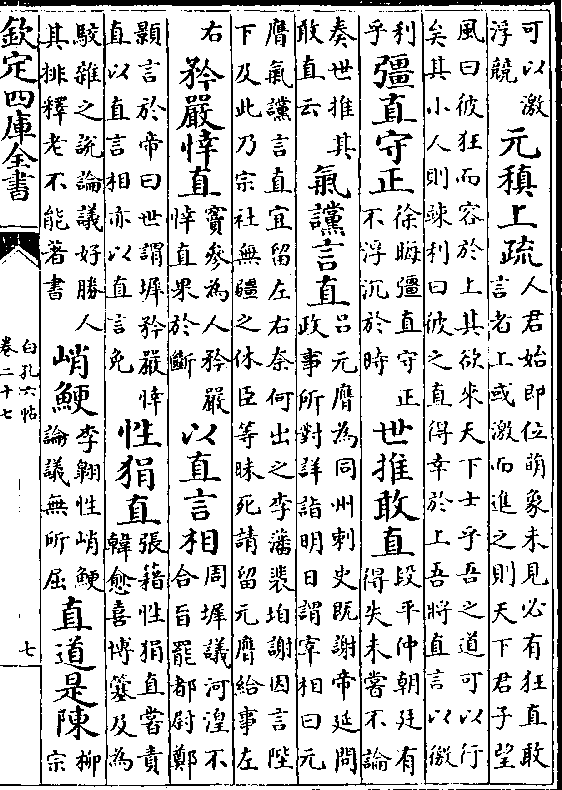 可以激
浮競
元稹上疏
人君始即位萌象未見必有狂直敢
言者上或激而進之則天下君子望
風曰彼狂而容於上其欲來天下士乎吾之道可以行
矣其小人則竦利曰彼之直得幸於上吾將直言以徼
利
乎
彊直守正
徐晦彊直守正
不浮沉於時
世推敢直
段平仲朝廷有
得失未嘗不論
奏世推其
敢直云
氣讜言直
吕元膺為同州刺史既謝帝延問
政事所對詳詣明日謂宰相曰元
膺氣讜言直宜留左右奈何出之李藩裴垍謝因言陛
下及此乃宗社無疆之休臣等昧死請留元膺給事左
右
矜嚴悻直
竇參為人矜嚴
悻直果於斷
以直言相
周墀議河湟不
合旨罷都尉鄭
顥言於帝曰世謂墀矜嚴悻
直以直言相亦以直言免
性狷直
張籍性狷直嘗責
韓愈喜博簺及為
駮雜之説論議好勝人
其排釋老不能著書
峭鯁
李翺性峭鯁
論議無所屈
直道是陳
柳
宗
欽定四庫全書
白孔六帖
卷二十七
七